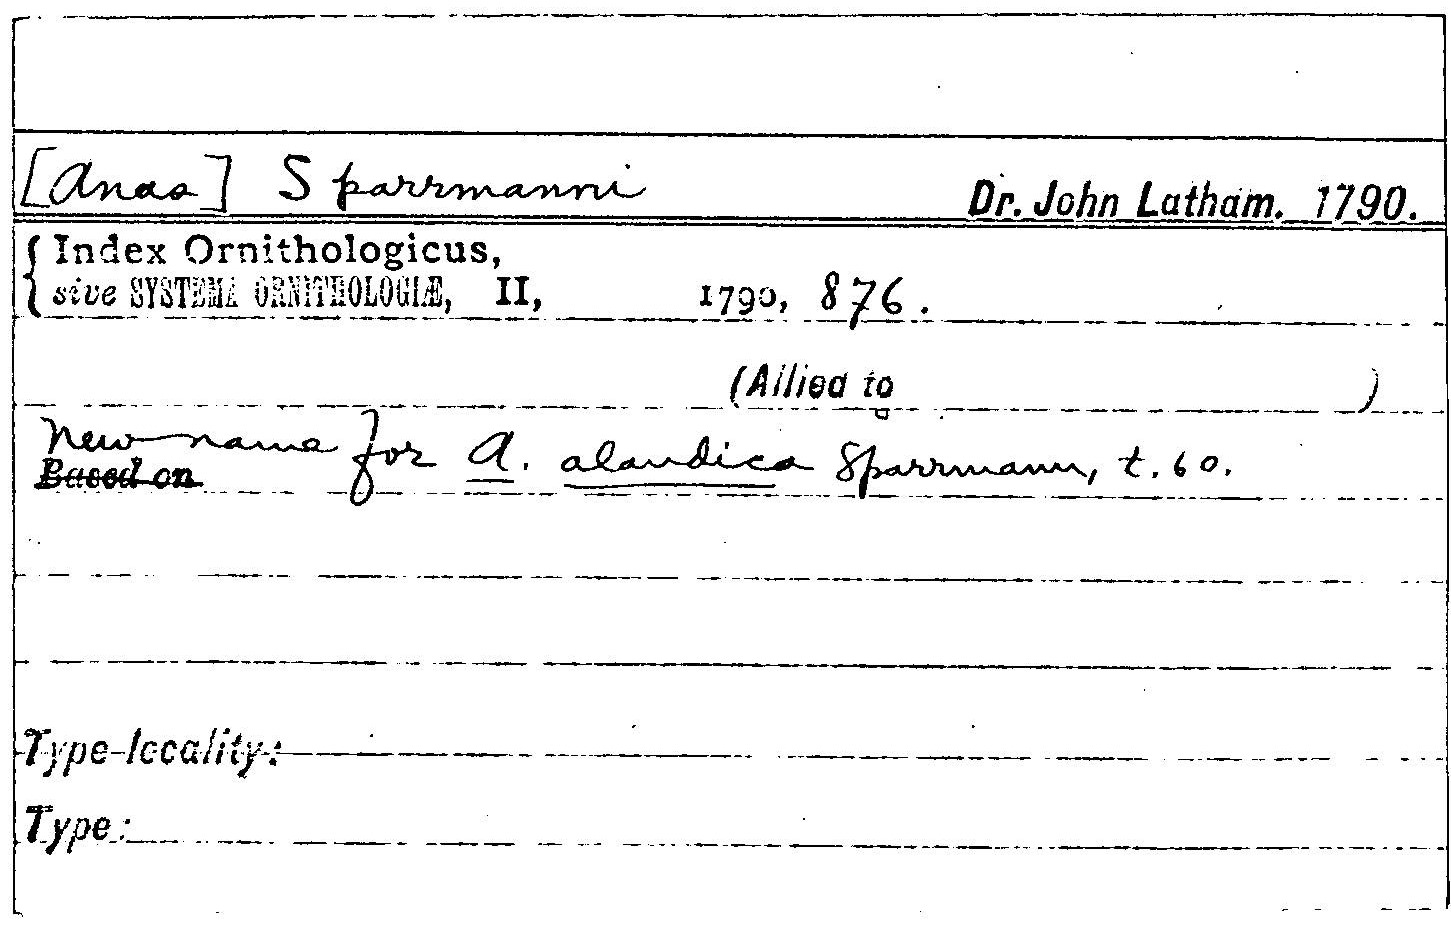 [Anas] Sparrmanni Dr. John Latham. 1790.
Index Ornithologicus,
sive SYSTEMA ORNITHOLOGIÆ, II, 1790, 876.
(Allied to )
New name for A. alandica Sparrmann, t. 60.
Based on
Type locality:
Type: